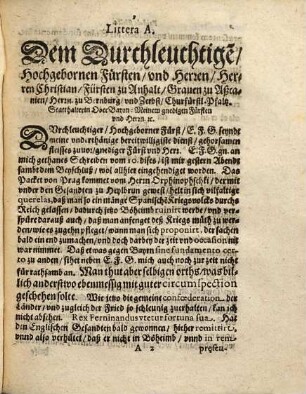 Littera A.
Dem Durchleuchtigē/
Hochgebornen Fürsten/ vnd Herren/ Her-
ren Christian/ Fürsten zu Anhalt/ Grauen zu Aſca-
nien/ Herrn zu Bernburg/ vnd Zerbst/ Churfürstl-Pfaltz-
Statthaltern Ober Bayrn-Meinem gnedigen Fürsten
vnd Herrn ꝛc.
DVrchleuchtiger/ Hochgeborner Fürst/ E. F. G. seyndt
meine vnderthänige bereitwilligiste dienst/ gehorsamen
fleisses zuuor/ gnediger Fürst vnd Herr. E. F. G. an
mich gethanes Schreiben vom 10. dises/ ist mir gestern Abendt
sambt dem Beyschluß/ wol allhier eingehendiget worden. Das
Packet von Prag kommet vom Herrn Orphinophischki/ der mit
vnder den Gesandten zu Heylbrun gewest/ helt in sich vilfaltige
querelas, daß man so ein mänge Spanisch Kriegsvolcks durchs
Reich gelassen/ dadurch jetzo Böheimb ruinirt werde/ vnd vr-
bare darauff auch/ daß man anfenget deß Kriegs müth zu wer-
den/ wie es zugehen pfleget/ wann man sich proponirt. der sachen
bald ein end zumachen/ vnd doch darbey der zeit vnd occasion nit
war nimmet. Daß etwas gegen Bayrn sine fundamento cer-
to zu anden/ sihet neben E. F. G. mich auch noch zur zeit nicht
für rathsamb an. Man thut aber selbigen orths/ was bil-
lich anderstwo eben messig mit guter circumspection
geschehen solte. Wie jetzo die gemeine confœderation der
Länder/ vnd zugleich der Fried so schleunig zuerhalten/ kan ich
nicht absehen. Rex Ferninandus vtetur fortuna sua. Hat
den Englischen Gesandten bald gewonnen/ hieher remittirt,
vnnd also verhütet/ daß er nicht in Böheimb/ vnnd in rem
A 2 presen-